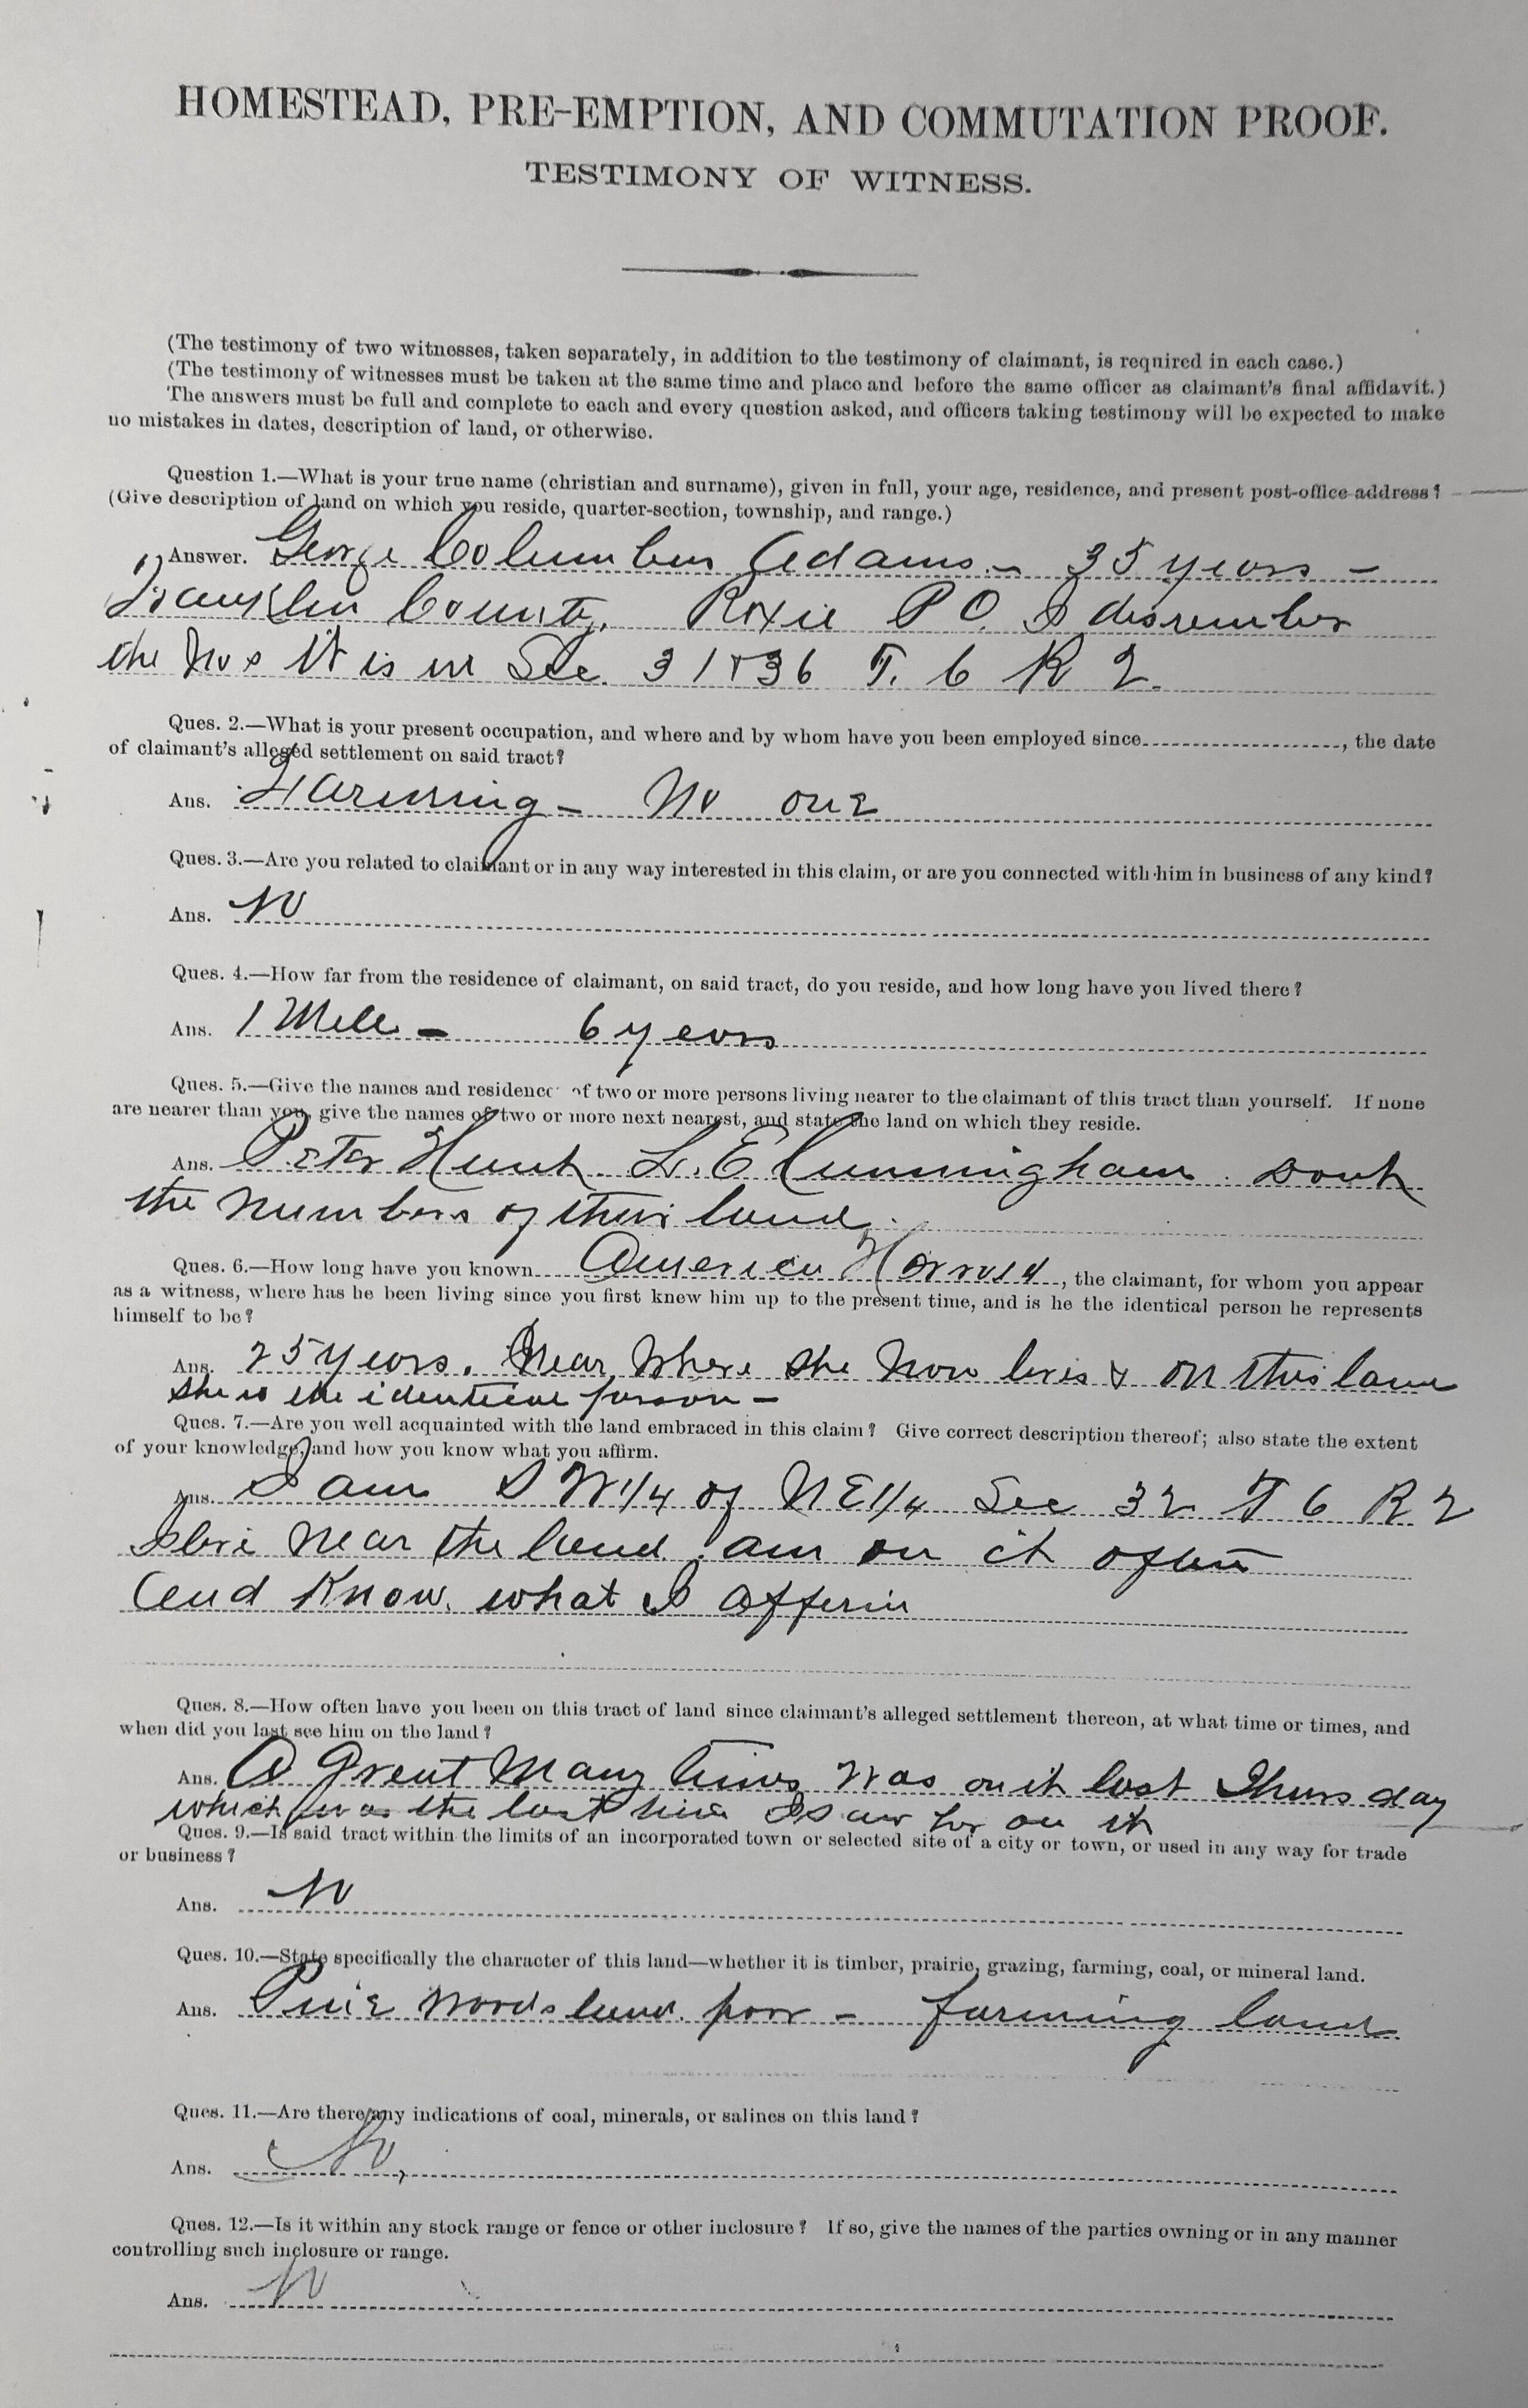 HOMESTEAD, PRE-EMPTION, AND COMMUTATION PROOF.
TESTIMONY OF WITNESS.
(The testimony of two witnesses, taken separately, in addition to the testimony of claimant, is required in each case.)
(The testimony of witnesses must be taken at the same time and place and before the same officer as claimant's final affidavit.)
The answers must be full and complete to each and every question asked, and officers taking testimony will be expected to make
no mistakes in dates, description of land, or otherwise.
Question 1.—What is your true name (christian and surname), given in full, your age, residence, and present post-office address?
(Give description of land on which you reside, quarter-section, township, and range.)
Answer. George Columbus Adams – 35 years –
Franklin County. Roxie P O. I disremember
the Nos It is in Sec. 31 & 36 T. 6 R 2.
Ques. 2.—What is your present occupation, and where and by whom have you been employed since..................., the date
of claimant's alleged settlement on said tract?
Ans. Farming – No one
Ques. 3.—Are you related to claimant or in any way interested in this claim, or are you connected with him in business of any kind?
Ans. No
Ques. 4.—How far from the residence of claimant, on said tract, do you reside, and how long have you lived there?
Ans. 1 Mile – 6 years
Ques. 5.—Give the names and residence of two or more persons living nearer to the claimant of this tract than yourself. If none
are nearer than you, give the names of two or more next nearest, and state the land on which they reside.
Ans. Peter Hunt. L. E Cunningham. Dont
the numbers of their land.
Ques. 6.—How long have you known America , the claimant, for whom you appear
as a witness, where has he been living since you first knew him up to the present time, and is he the identical person he represents
himself to be?
Ans. 25 years. Near where she now lives & on this land
she is the identical person –
Ques. 7.—Are you well acquainted with the land embraced in this claim? Give correct description thereof; also state the extent
of your knowledge, and how you know what you affirm.
Ans. I am S W 1/4 of N E 1/4 Sec 32 T 6 R 2
I live near the land. am on it often
and know. what I affirm
Ques. 8.—How often have you been on this tract of land since claimant's alleged settlement thereon, at what time or times, and
when did you last see him on the land?
Ans. A great many times was on it last Thursday
which was the last time I saw her on it
Ques. 9.—Is said tract within the limits of an incorporated town or selected site of a city or town, or used in any way for trade
or business?
Ans. No
Ques. 10.—State specifically the character of this land—whether it is timber, prairie, grazing, farming, coal, or mineral land.
Ans. Pine woods land. poor – farming land
Ques. 11.—Are there any indications of coal, minerals, or salines on this land?
Ans. No,
Ques. 12.—Is it within any stock range or fence or other inclosure? If so, give the names of the parties owning or in any manner
controlling such inclosure or range.
Ans. No